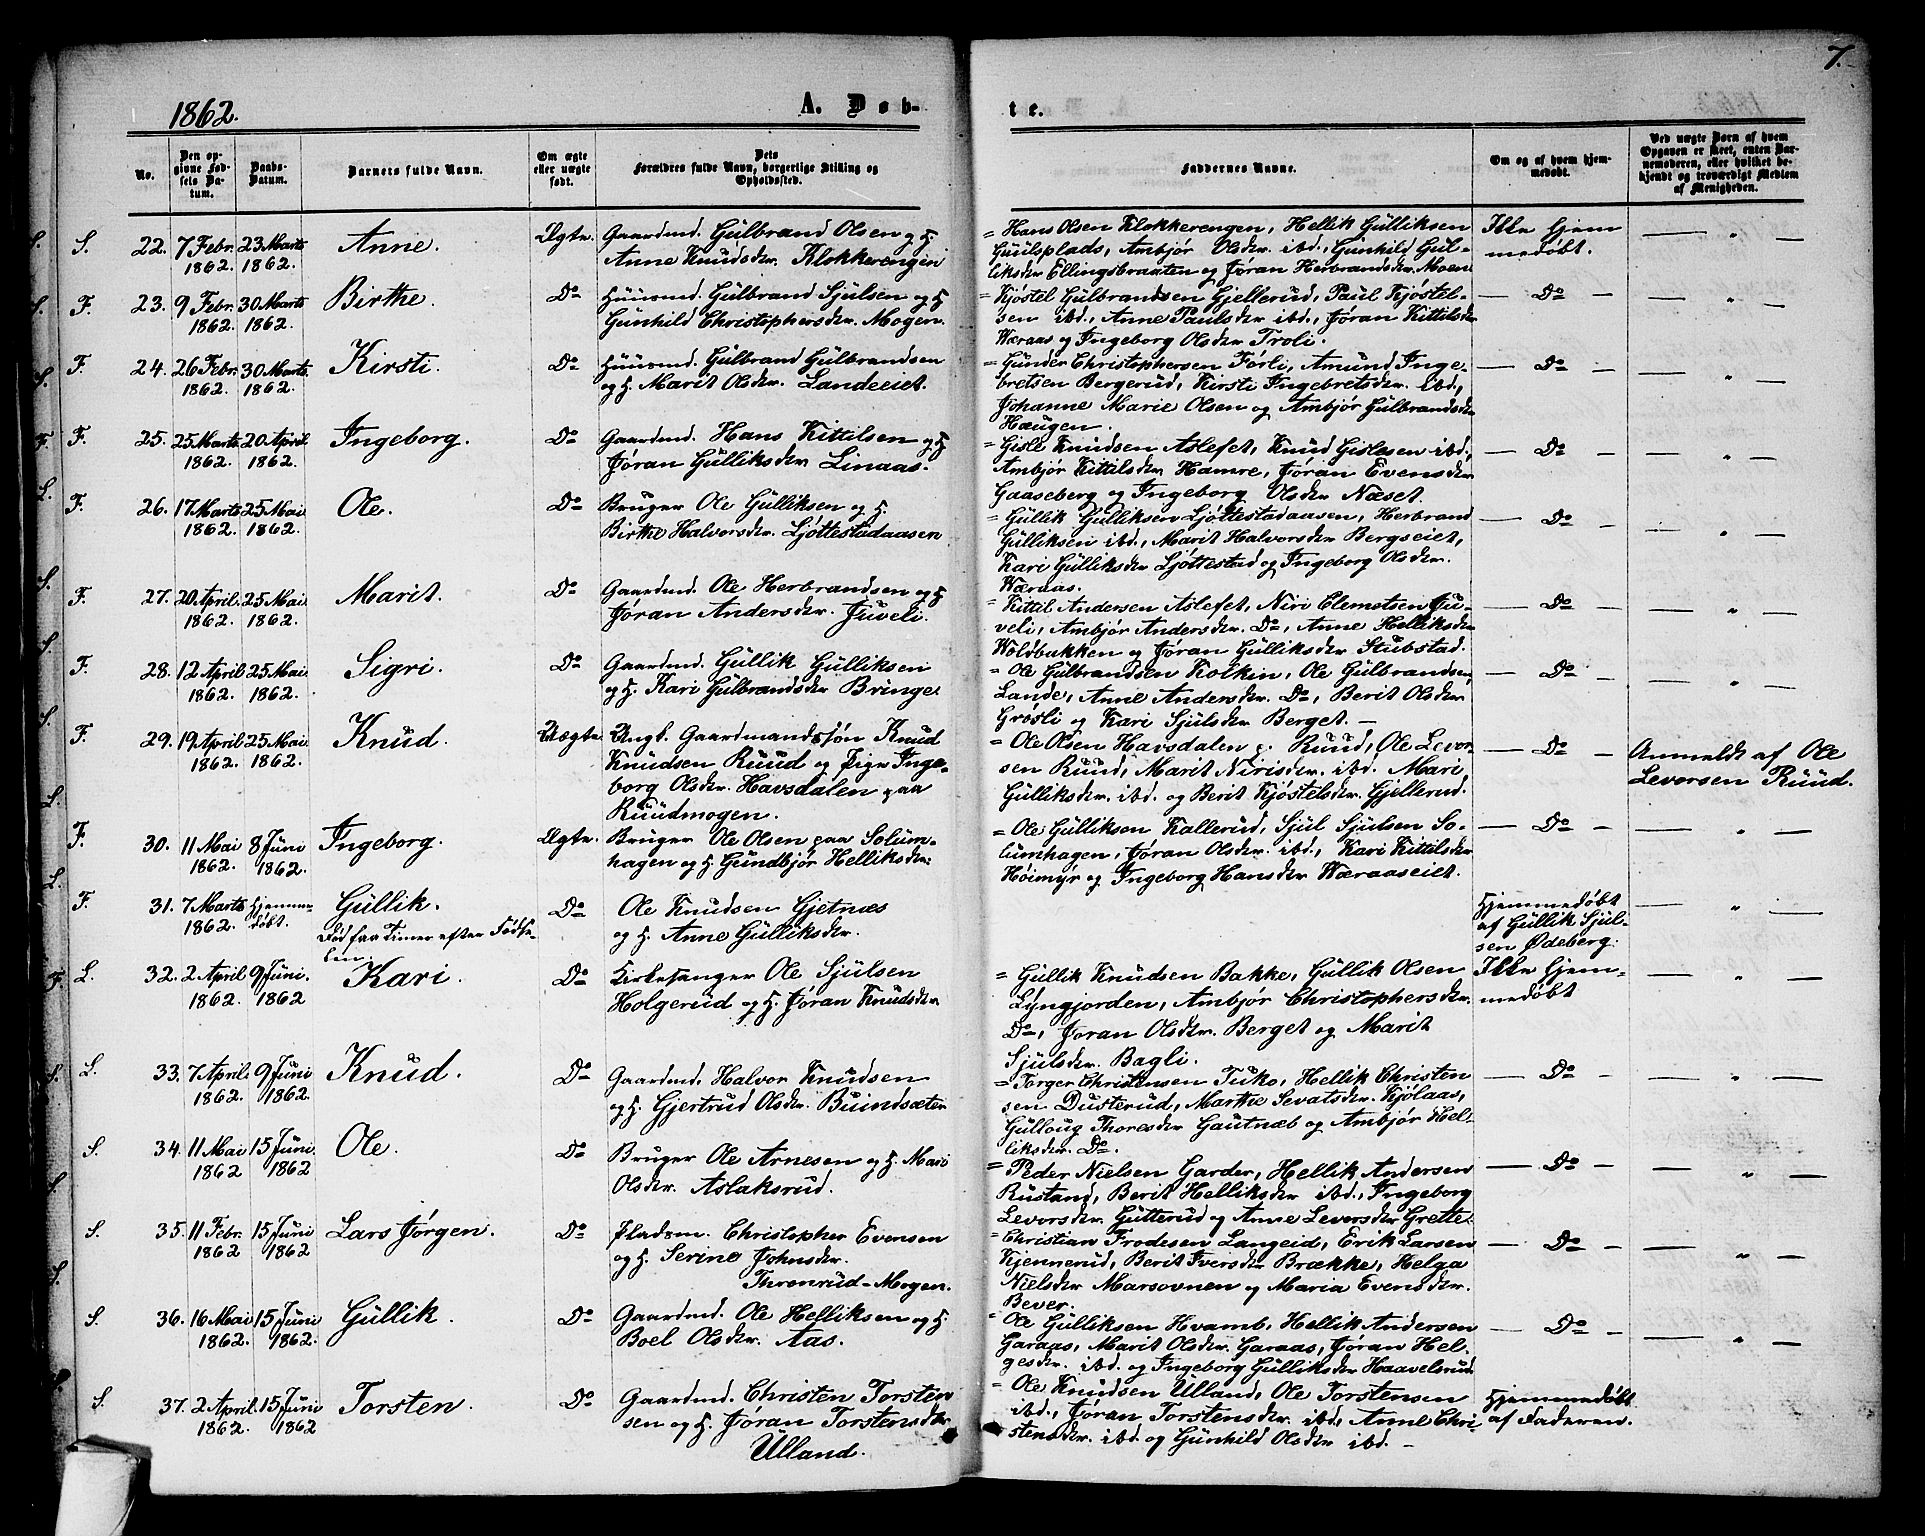 7.
1862. A. Døb-
te.
No.
Den op-
givne Fød-
sels Da-
tum.
Daabs-
Datum.
Barnets fulde Navn.
Om ægte
eller uægte
født.
Dets
Forældres fulde Navn, borgerlige Stilling og
Opholdssted.
Faddernes Navne.
Om og af hvem hjem-
medøbt.
Ved uægte Børn af hvem
Opgaven er skeet, enten Bar-
nemoderen, eller hvilket be-
kjendt og troværdigt Medlem
af Menigheden.
S. 22. 7 Febr. 1862. 23 Marts 1862. Anne. Ægte.
Gaardmd. Gülbrand Olsen og H.
Anne Knüdsdr. Klokkerengin
= Hans Olsen Klokkerengen, Hellik Gülliksen
Güülsplads, Ambjør Olsdr. ibd., Günhild Gül-
liksdr Ellingsbraaten og Jøran Herbrandsdr. Moen
Ikke hjem
medøbt.
— " —
F. 23. 9 Febr. 1862. 30 Marts 1862. Birthe. Do
Hüüsmd. Gülbrand Sjülsen og H
Günhild Christophersdr. Mogen.
= Kjøstel Gülbrandsen Gjellerüd, Paul Kjøstel-
sen ibd., Anne Paulsdr ibd., Jøran Kittilsdr
Wæraas og Ingeborg Olsdr Troli.
— Do —
— " —
F. 24. 26 Febr. 1862. 30 Marts 1862. Kirsti. Do
Hüüsmd. Gülbrand Gülbrandsen
og H. Marit Olsdr. Landeeiet.
= Günder Christophersen Førli, Amünd Inge-
bretsen Bergerüd, Kirsti Ingebretsdr. ibd.,
Johanne Marie Olsen og Ambjør Gülbrandsdr
Haügen.
— Do —
— " —
F. 25. 25 Marts 1862. 20 April 1862. Ingeborg. Do
Gaardmd. Hans Kittilsen og H
Jøran Gülliksdr Linaas.
= Gisle Knüdsen Aslefet, Knüd Gislesen ibd.,
Ambjør Kittilsdr Hamre, Jøran Evensdr
Gaaseberg og Ingeborg Olsdr Næset.
— Do —
— " —
F. 26. 17 Marts 1862. 25 Mai 1862. Ole. Do
Bruger Ole Gülliksen og H.
Birthe Halvorsdr. Ljøttestadaasen
= Güllik Gülliksen Ljøttestadaasen, Herbrand
Gülliksen ibd., Marit Halvorsdr Bergseiet,
Kari Gülliksdr Ljøttestad og Ingeborg Olsdr.
Wæraas.
— Do —
— " —
F. 27. 20 April 1862. 25 Mai 1862. Marit. Do
Gaardmd. Ole Herbrandsen og H
Jøran Andersdr. Jüveli.
= Kittil Andersen Aslefet, Niri Clemetsen Jü-
veli, Ambjør Andersdr. Do, Anne Helliksdr
Woldbakken og Jøran Gülliksdr Stübstad.
— Do —
— " —
F. 28. 12 April 1862. 25 Mai 1862. Sigri. Do
Gaardmd. Güllik Gülliksen
og H. Kari Gülbrandsdr Bringe.
= Ole Gülbrandsen Kolkin, Ole Gülbrandsen
Lande, Anne Andersdr. Do, Berit Olsdr
Grøsli og Kari Sjülsdr Berget. —
— Do —
— " —
F. 29. 19 April 1862. 25 Mai 1862. Knüd. Uægte.
Ungk. Gaardmandssøn Knüd
Knüdsen Rüüd og Pige Inge-
borg Olsdr. Havsdalen paa
Rüüdmogen.
= Ole Olsen Havsdalen p. Rüüd, Ole Levor-
sen Rüüd, Marit Nirisdr. ibd. Mari
Gülliksdr. ibd. og Berit Kjøstelsdr. Gjellerüd.
— Do —
Anmeldt af Ole
Levorsen Rüüd.
F. 30. 11 Mai 1862. 8 Jüni 1862. Ingeborg. Ægte.
Bruger Ole Olsen paa Solüm-
hagen og H Gündbjør Helliksdr.
= Ole Gülliksen Kallerüd, Sjül Sjülsen So-
lümhagen, Jøran Olsdr. ibd., Kari Kittilsdr
Høimÿr og Ingeborg Hansdr Wæraaseiet.
— Do —
— " —
F. 31. 7 Marts 1862. Hjemme-
døbt. Güllik. Do
Død faa Timer efter Fødse-
len.
Ole Knüdsen Gjetnæs
og H. Anne Gülliksdr.
Hjemmedøbt
af Güllik Sjül-
sen Ødeberg.
— " —
L. 32. 2 April 1862. 9 Jüni 1862 Kari. Do
Kirkesanger Ole Sjülsen
Holgerüd og H. Jøran Knüdsdr
= Güllik Knüdsen Bakke, Güllik Olsen
Lÿngjorden, Ambjør Christophersdr.
Do, Jøran Olsdr. Berget og Marit
Sjülsdr. Bagli.
Ikke hjem-
medøbt
— " —
L. 33. 7 April 1862. 9 Jüni 1862. Knüd. Do
Gaardmd. Halvor Knüdsen
og H. Gjertrüd Olsdr. Büindsæter
= Torger Christensen Tüko, Hellik Christen
sen Düsterüd, Marthe Sevatsdr. Kjølaas,
Gülloüg Thoresdr Gaütnæb og Ambjør Hel-
liksdr. Do.
— Do —
— " —
S. 34. 11 Mai 1862 15 Jüni 1862 Ole. Do
Bruger Ole Arnesen og H. Mari
Olsdr. Aslaksrüd.
= Peder Nielsen Garder, Hellik Andersen
Rüstand, Berit Helliksdr ibd., Ingeborg
Levorsdr. Gütterüd og Anne Levorsdr Grette.
— Do —
— " —
S. 35. 11 Febr. 1862 15 Jüni 1862 Lars Jørgen. Do
Pladsm. Christopher Evensen
og H. Serine Johnsdr.
Thronrüd-Mogen.
= Christian Frodesen Langeid, Erik Larsen
Kjennerüd, Berit Iversdr Brække, Helga
Nielsdr Marsovnen og Maria Evensdr.
Bever.
— Do —
— " —
S. 36. 16 Mai 1862. 15 Jüni 1862. Güllik. Do
Gaardmd. Ole Helliksen og H.
Boel Olsdr. Aas.
= Ole Gülliksen Hvamb, Hellik Andersen
Garaas, Marit Olsdr. Garaas, Jøran Hel-
gesdr. ibd. og Ingeborg Gülliksdr Haavelsrüd.
— Do —
— " —
S. 37. 2 April 1862. 15 Jüni 1862 Torsten. Do
Gaardmd. Christen Torsten
sen og H. Jøran Torstensdr
Ülland.
= Ole Knüdsen Ülland, Ole Torstensen
ibd., Jøran Torstensdr. ibd., Anne Chri-
stensdr. ibd og Günhild Olsdr ibd. —
Hjemmedøbt
af Faderen.